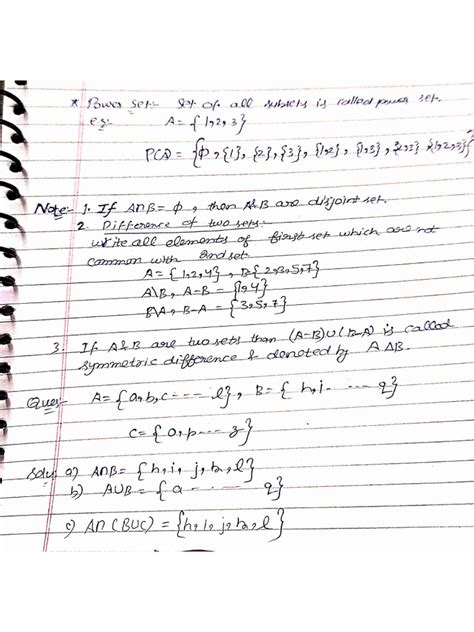 * Power set:- Set of all subsets is called power set.
eg:- A = {1,2,3}
P(A) = {ϕ, {1}, {2}, {3}, {1,2}, {1,3}, {2,3} {1,2,3}}
Note:- 1. If A∩B = ϕ, then A&B are disjoint set.
2. Difference of two sets:-
write all elements of first set which are not
common with 2nd set.
A = {1,2,4}, B = {2,3,5,7}
A\B, A-B = {1,4}
B\A, B-A = {3,5,7}
3. If A&B are two sets than (A-B)∪(B-A) is called
symmetric difference & denoted by A∆B.
Ques:- A = {a,b,c---- l}, B = {h,i- ---- q}
C = {o,p---- z}
Solu: a) A∩B = {h, i, j, k, l}
b) A∪B = {a - ---- q}
c) A∩(B∪C) = {h, i, j, k, l}